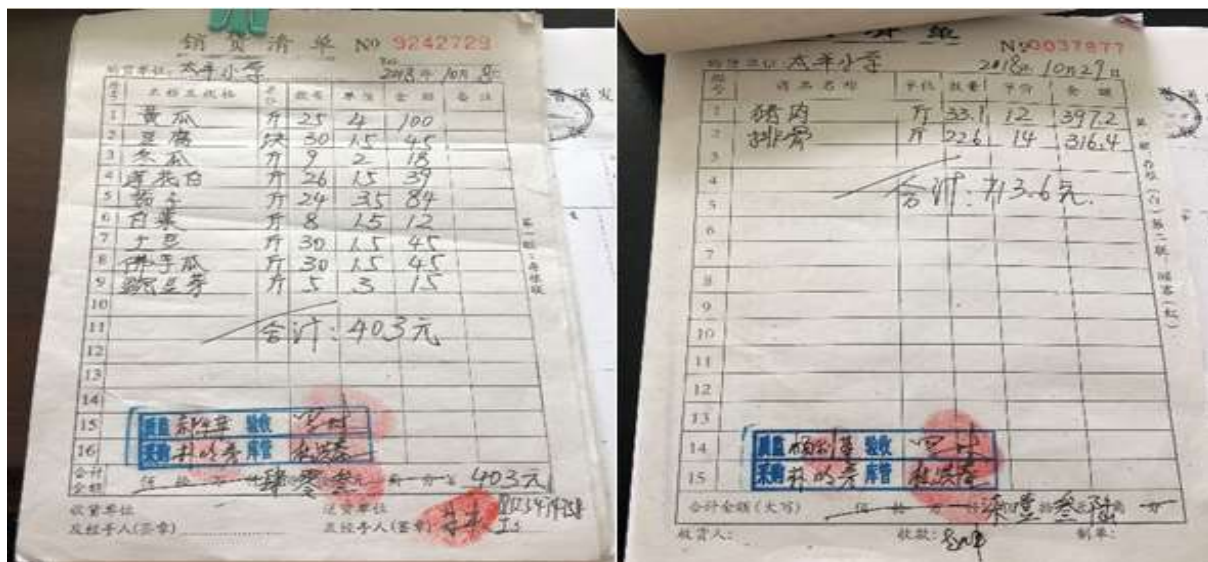 销货清单 No 9242729
购货单位: 太平小学 2018年10月8日
序号 名称及规格 单位 数量 单价 金额 备注
1 黄瓜 斤 25 4 100
2 豆腐 块 30 1.5 45
3 冬瓜 斤 9 2 18
4 莲花白 斤 26 1.5 39
5 茄子 斤 24 3.5 84
6 白菜 斤 8 1.5 12
7 土豆 斤 30 1.5 45
8 佛手瓜 斤 30 1.5 45
9 豌豆芽 斤 5 3 15
10
11 合计:403元
12
13
14
15 质监 验收
16 采购 库管
合计金额 佰 拾 万 仟 肆 零 叁 元 角 分 ¥ 403元
收货单位 送货单位
及经手人(签章) 及经手人(签章)
第一联:存根联
单 No 0037877
购货单位 太平小学 2018年10月29日
编号 商品名称 单位 数量 单价 金额
1 猪肉 斤 33.1 12 397.2
2 排骨 斤 22.6 14 316.4
3
4 合计:713.6元
5
6
7
8
9
10
11
12
13
14 质监 验收
15 采购 库管
合计金额(大写) 佰 拾 万 仟 柒 佰 壹 拾 叁 元 陆 角 分
收货人: 收款: 制单: